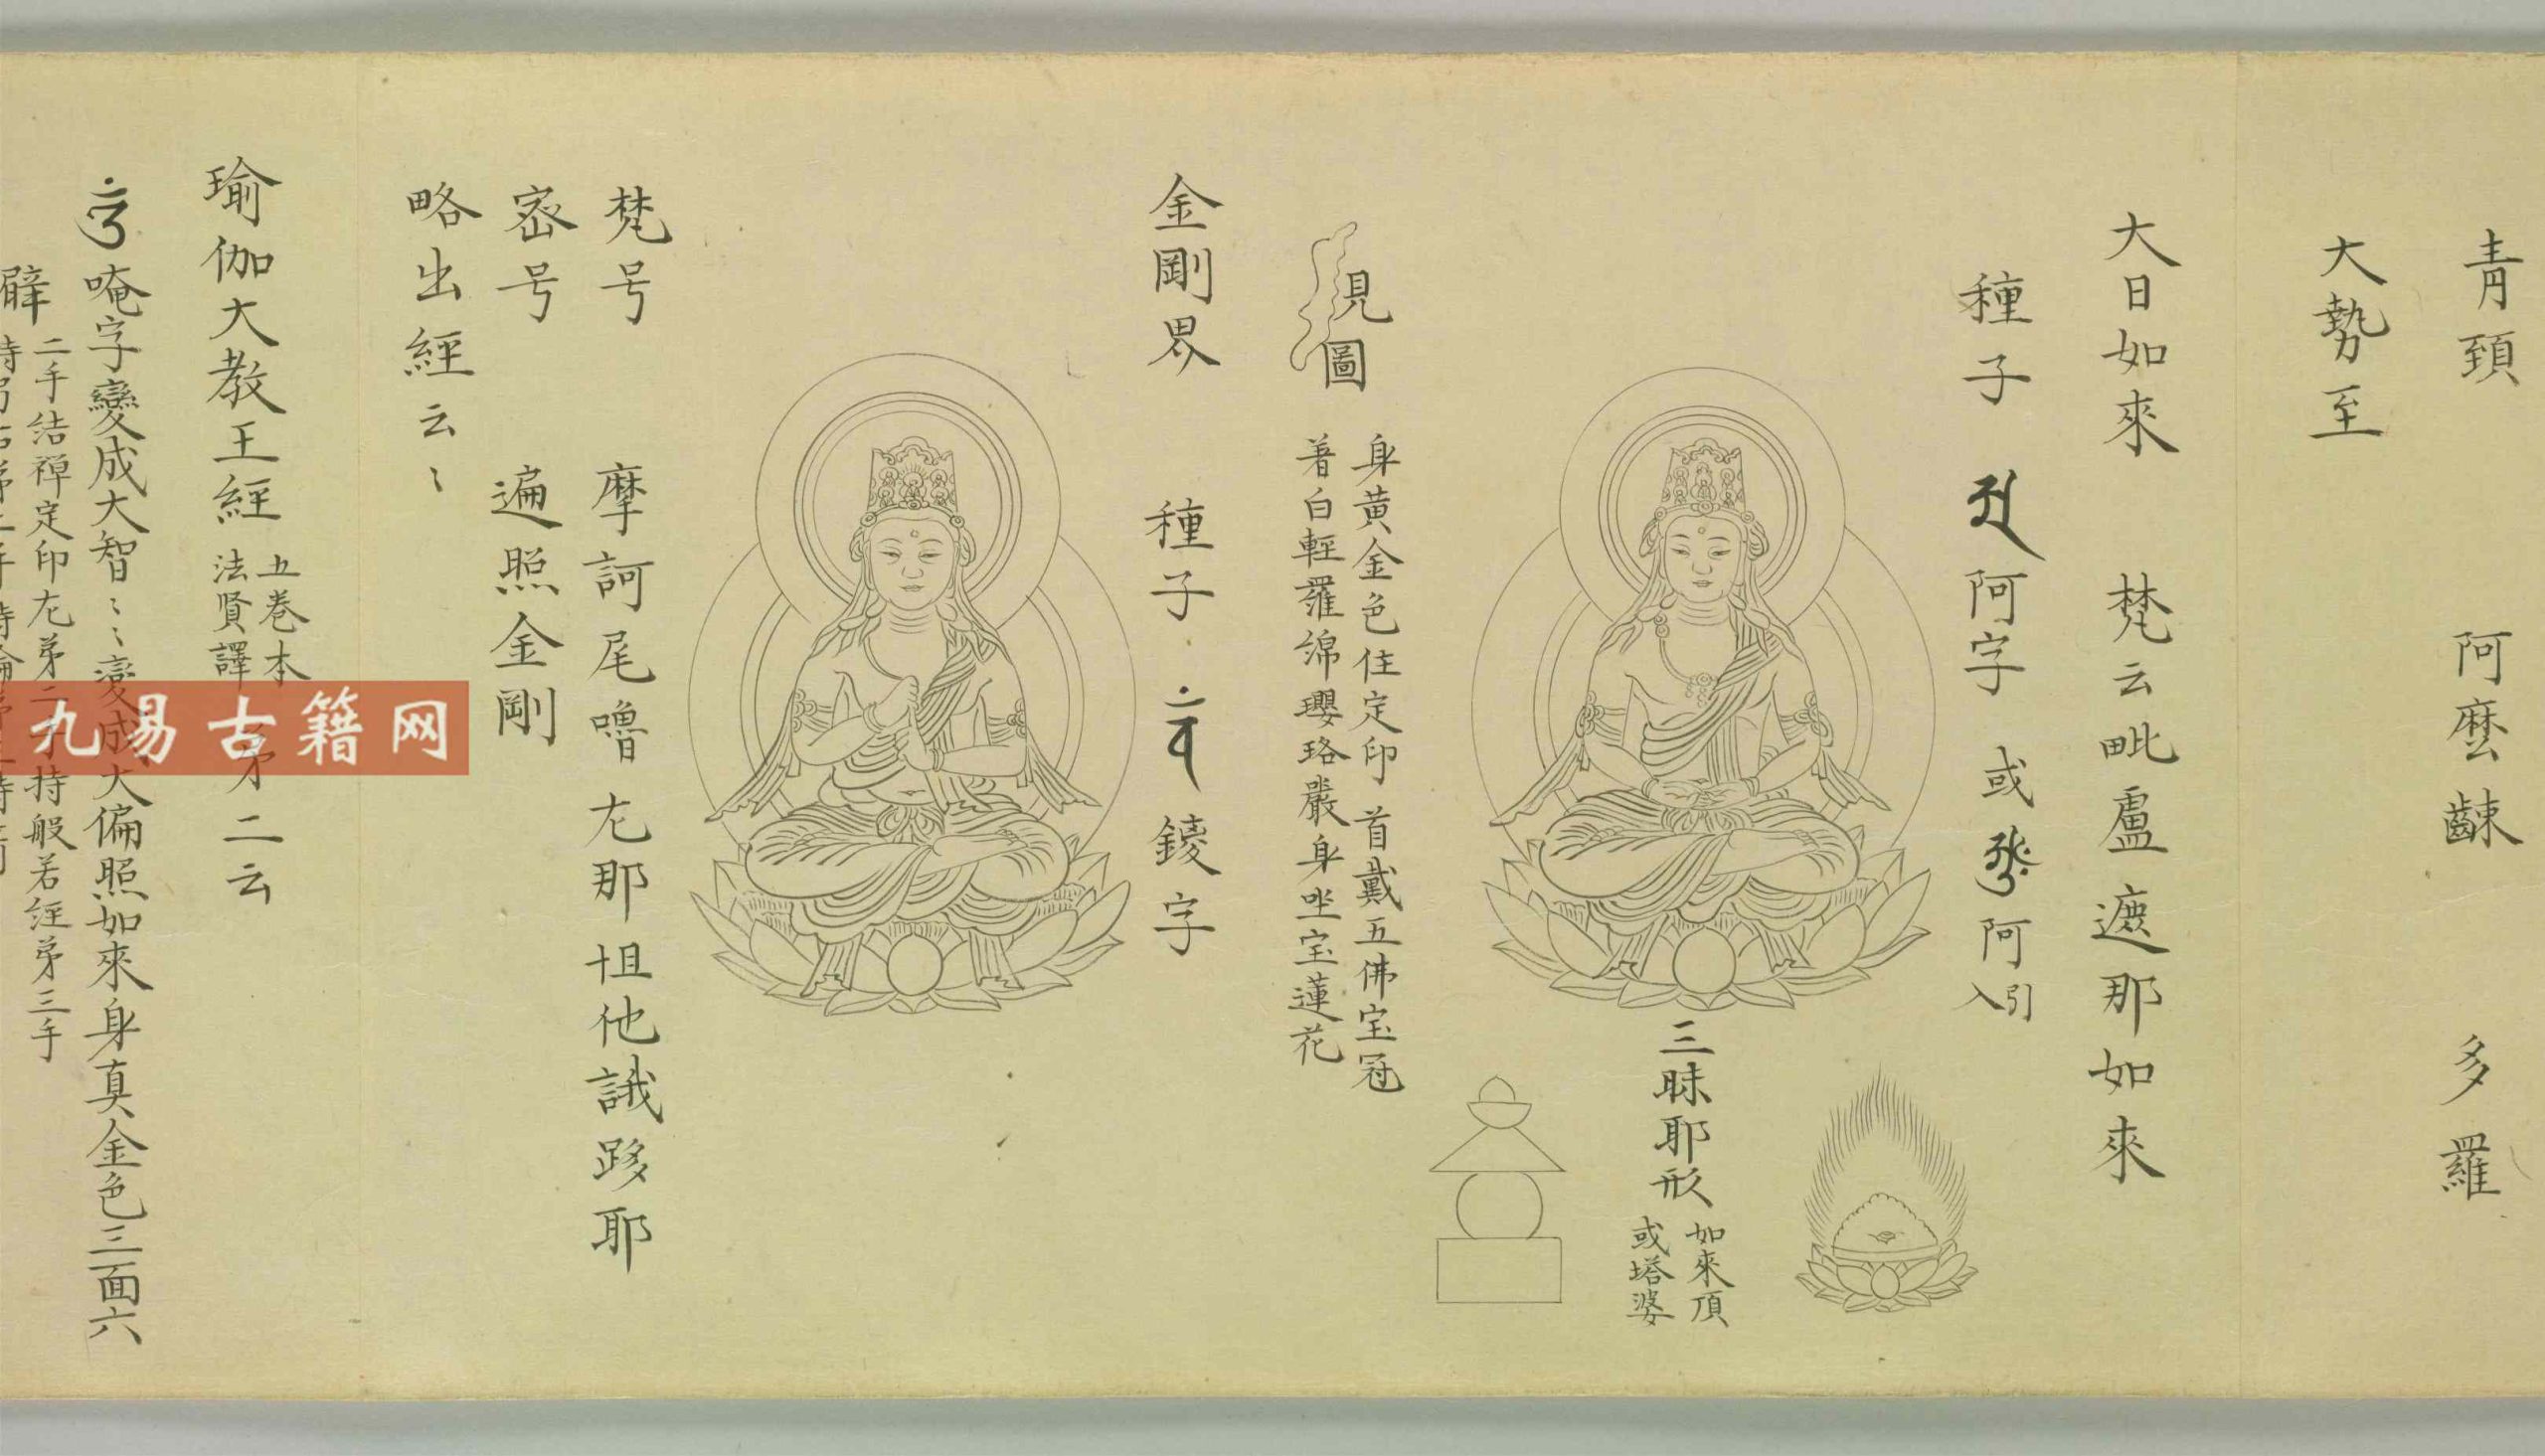 青頚　阿麼䶖　多羅
大勢至
大日如來　梵云毗盧遮那如來
種子　阿字　或　阿引入
三昧耶形　如來頂
或塔婆
見圖　身黃金色住定印首戴五佛宝冠
著白輕羅綿瓔珞嚴身坐宝蓮花
金剛界　種子　鑁字
梵号　摩訶尾嚕左那怛他誐跢耶
密号　遍照金剛
略出經云〻
瑜伽大教王經　五卷本
法賢譯　第二云
唵字變成大智〻〻變成大徧照如來身真金色三面六
臂　二手結禪定印左第二手持般若経第三手
九易古籍网